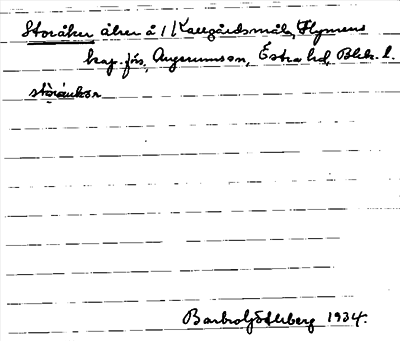 Storåker åker å 1 Kallgårdsmåla, Flymens
kap. förs, Augerumssn, Östra hd, Blek. l.
stòrákər
Barbro Söderberg 1934.